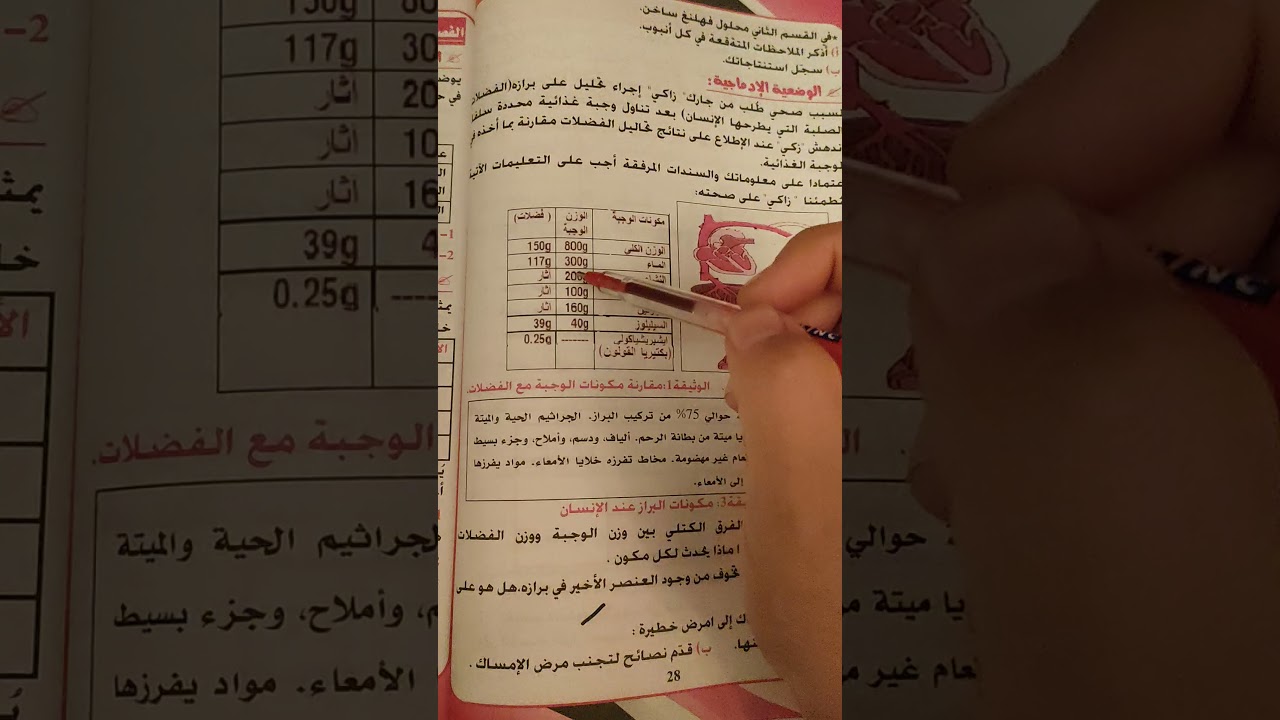 *في القسم الثاني محلول فهلنغ ساخن.
أ) أذكر الملاحظات المتوقعة في كل أنبوب.
ب) سجّل استنتاجاتك.
الوضعية الإدماجية:
لسبب صحي طُلب من جارك "زاكي" إجراء تحليل على برازه(الفضلات
الصلبة التي يطرحها الإنسان) بعد تناول وجبة غذائية محددة سلفا
ندهش "زكي" عند الإطلاع على نتائج تحاليل الفضلات مقارنة بما أخذه في
لوجبة الغذائية.
عتمادا على معلوماتك والسندات المرفقة أجب على التعليمات الآتية
تطمئننا "زاكي" على صحته:
مكونات الوجبة الوزن الوجبة ( فضلات)
الوزن الكلي 800g 150g
الماء 300g 117g
النشاء 200g آثار
100g آثار
160g آثار
السيليلوز 40g 39g
ايشيريشياكولي (بكتيريا القولون) ------ 0.25g
الوثيقة1:مقارنة مكونات الوجبة مع الفضلات.
حوالي 75% من تركيب البراز. الجراثيم الحية والميتة
يا ميتة من بطانة الرحم. ألياف، ودسم، وأملاح، وجزء بسيط
عام غير مهضومة. مخاط تفرزه خلايا الأمعاء. مواد يفرزها
إلى الأمعاء.
يقة3: مكونات البراز عند الإنسان
الفرق الكتلي بين وزن الوجبة ووزن الفضلات
ا ماذا يحدث لكل مكون .
تخوف من وجود العنصر الأخير في برازه.هل هو على
ك إلى امرض خطيرة :
نها. ب) قدّم نصائح لتجنب مرض الإمساك .
28